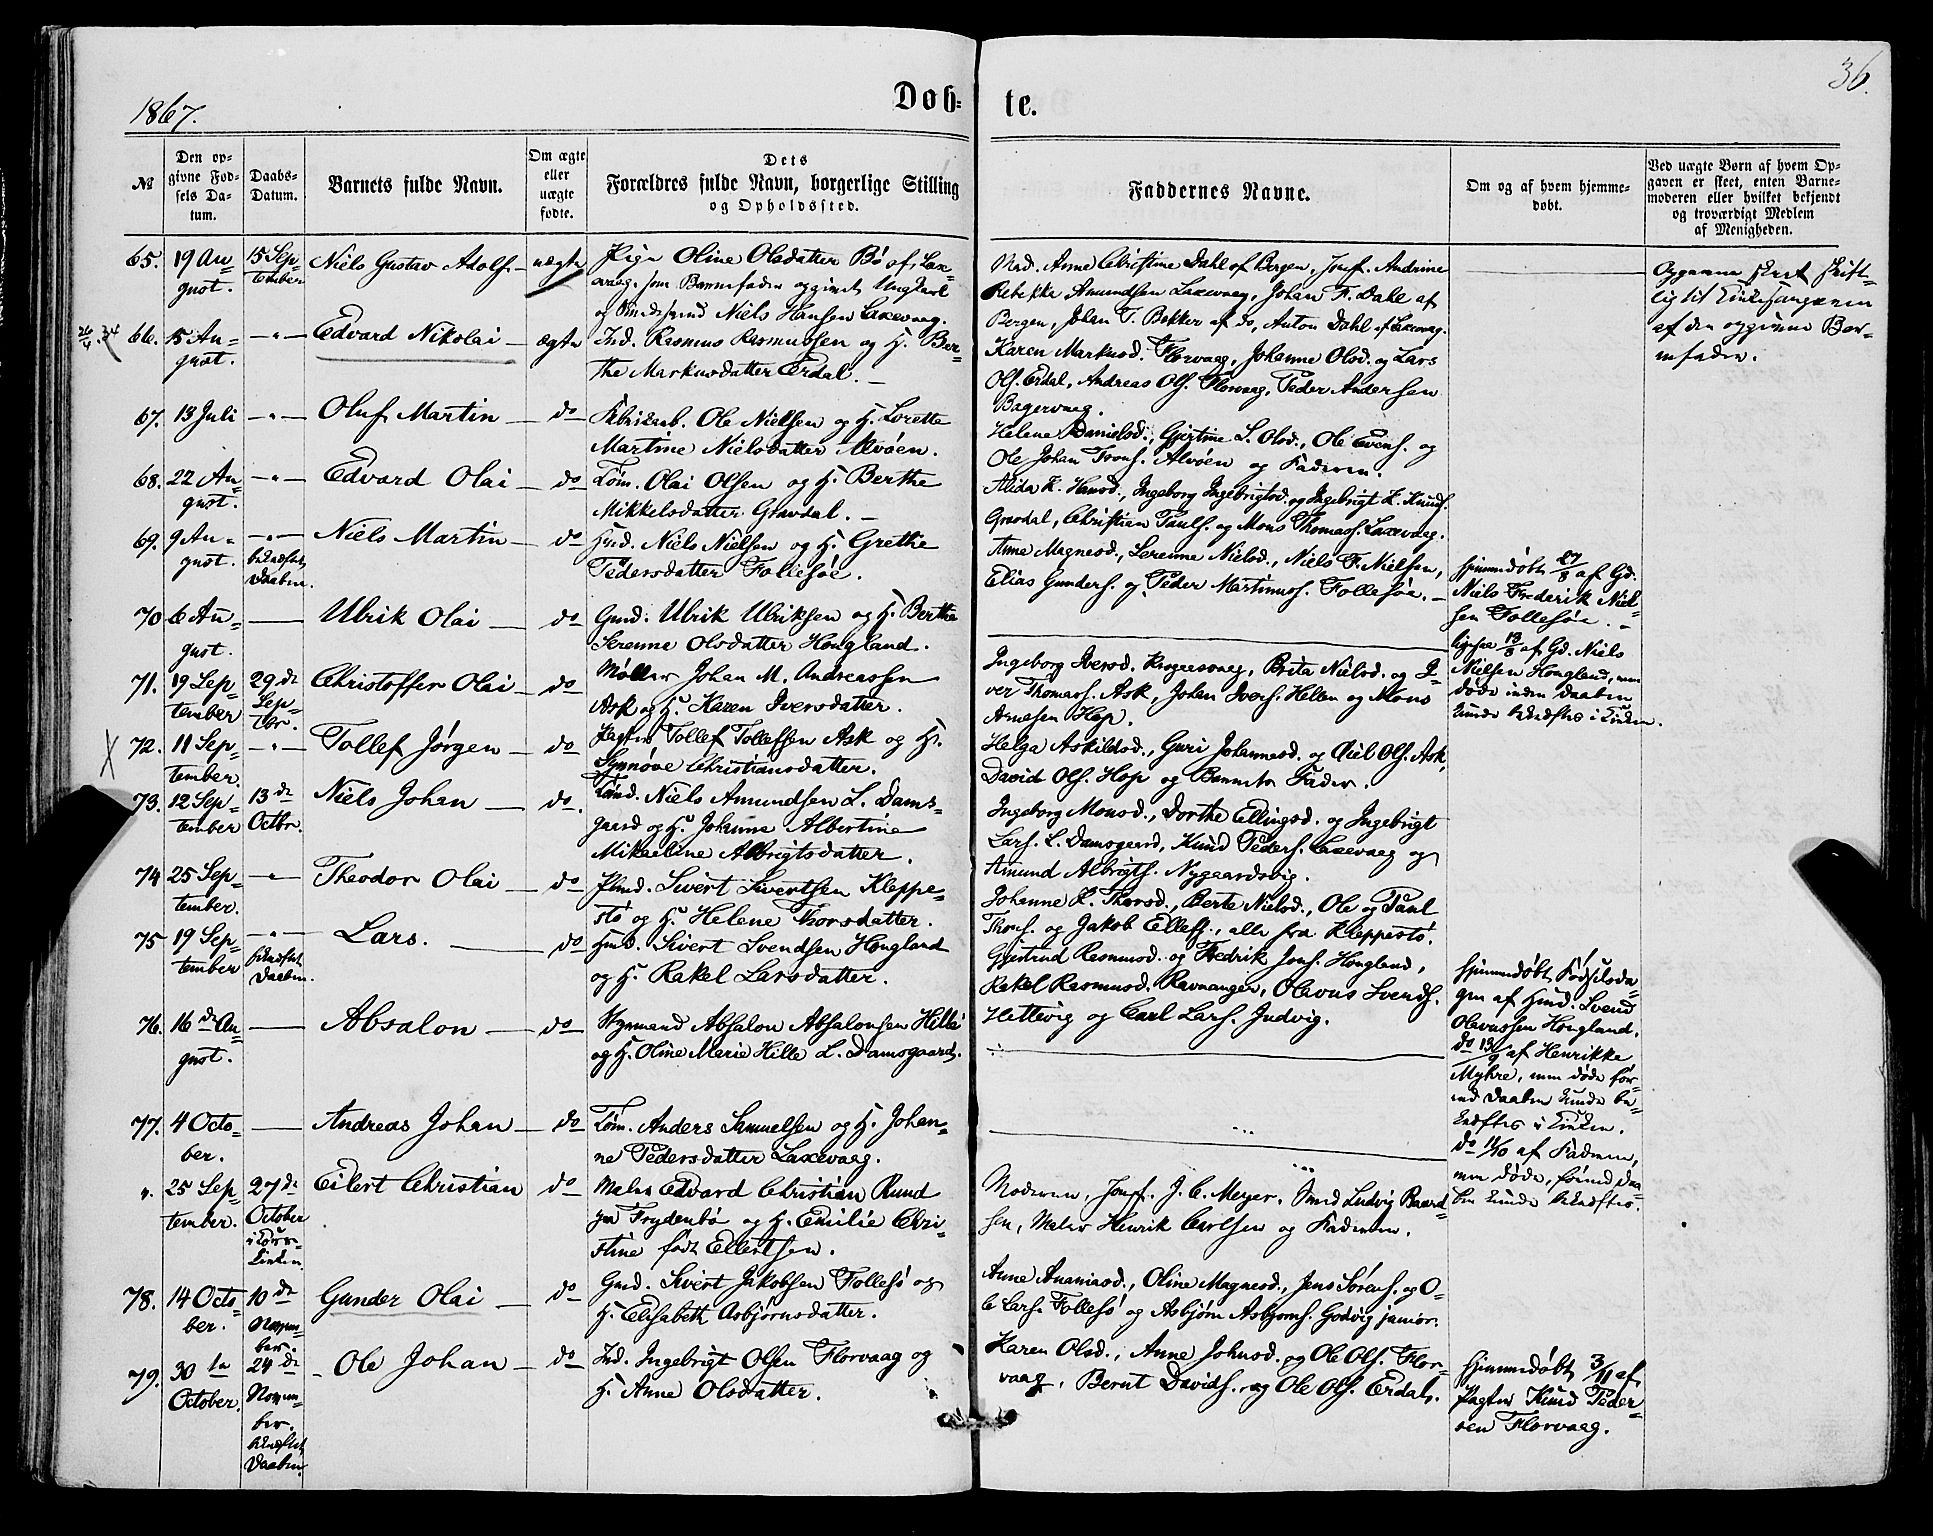 1867.
Døb-
te.
36.
№
Den op-
givne Fød-
sels Da-
tum.
Daabs-
Datum.
Barnets fulde Navn.
Om ægte
eller
uægte
fødte.
Dets
Forældres fulde Navn, borgerlige Stilling
og Opholdssted.
Faddernes Navne.
Om og af hvem hjemme-
døbt.
Ved uægte Børn af hvem Op-
gaven er skeet, enten Barne-
moderen eller hvilket bekjendt
og troværdigt Medlem
af Menigheden.
65. 19 Au-
gust.
15 Sep-
tember
Niels Gustav Adolf. uægte
Pige Oline Olsdatter Bø af Lax-
evaag, som Barnefader opgivet Ungkarl
og Niels Hansen Laxevaag.
Mad. Anne Christine Dahl af Bergen, Jomf. Andrine
Rebekke Amundsen Laxevaag, Johan F. Dahl af
Bergen, Johan T. Bekker af do, Anton Dahl af Laxevaag.
Opgaven skeet skrift-
lig til Kirkesangeren
af den opgivne Bar-
nefader.
66. 15 Au-
gust.
-"-
Edvard Nikolai - ægte
Ind. Rasmus Rasmussen og H. Ber-
the Markusdatter Erdal. -
Karen Markusd. Florvaag, Johanne Olsd. og Lars
Ols. Erdal, Andreas Ols. Florvaag, Peder Andersen
Bagervaag.
67. 13 Juli -"- Oluf Martin - do
Fabrikarb. Ole Nielsen og H. Lorette
Martine Nielsdatter Alvøen.
Helene Danielsd., Gjertine L. Olsd., Ole Evens. og
Ole Johan Trons. Alvøen og Faderen.
68. 22 Au-
gust.
-"- Edvard Olai - do
Tøm. Olai Olsen og H. Berthe
Mikkelsdatter Gravdal. -
Alida K. Hansd., Ingeborg Ingebrigtsd. og Ingebrigt K. Knuds.
Gravdal, Christian Pauls. og Mons Thomass. Laxevaag.
69. 9 Au-
gust.
-"-
bekræftet
Daaben.
Niels Martin - do
Hmd. Niels Nielsen og H. Grethe
Pedersdatter Follesøe.
Anne Magnesd., Serenne Nielsd., Niels F. Nielsen,
Elias Gunders. og Peder Martinus. Follesøe. -
Hjemmedøbt 27/8 af Gd.
Niels Frederik Niel-
sen Follesøe. -
70 6 Au-
gust.
Ulrik Olai - do
Gmd. Ulrik Ulriksen og H. Berthe
Serenne Olsdatter Hougland.
ligesaa 13/8 af Gd. Niels
Nielsen Hougland, men
døde inden Daaben
kunde bekræftes i Kirken.
71. 19 Sep-
tember
29 de
Sep-
tbr.
Christoffer Olai - do
Møller Johan M. Andreassen
Ask og H. Karen Iversdatter.
Ingeborg Iversd. , Brita Nielsd. og I-
ver Thomass. Ask, Johan Ivers. Hellen og Mons
Arnesen Hop.
72. 11 Sep-
tember.
-"- Tollef Jørgen - do
Pagter Tollef Tollefsen Ask og H.
Synnøve Christiansdatter.
Helga Askildsd., Guri Johannesd. og Axel Ols. Ask,
David Ols. Hop og Barnets Fader.
73. 12 Sep-
tember
13 de
Octbr.
Niels Johan - do.
Niels Amundsen L. Dams-
gaard og H. Johanne Albertine
Mikaeline Albrigtsdatter.
Ingeborg Monsd., Dorthe Ellingsd. og Ingebrigt
Lars. L. Damsgaard, Knud Peders. Laxevaag og
Amund Albrigts. Nygaardsvig.
74 25 Sep-
tember.
-"- Theodor Olai - do
Hmd. Sivert Sivertsen Kleppe-
stø og H. Helene Thorsdatter.
Johanne K. Thorsd., Berte Nielsd., Ole og Paul
Thors. og Jakob Ellefs., alle fra Kleppestø.
75 19 Sep-
tember
-"-
bekræftet
Daaben.
Lars. do
Hmd. Sivert Svendsen Hougland
og H. Rakel Larsdatter.
Gjertrud Rasmusd. og Fredrik Jons. Hougland,
Rakel Rasmusd. Ravnanger, Olavus Svends.
Hettevig og Carl Lars. Judvig.
Hjemmedøbt Fødselsda-
gen af Hmd. Svend
Olavussen Hougland.
76. 16 de Au-
gust.
Absalon - do
Styrmand Absalon Absalonsen Hille
og H. Oline Marie Hille L. Damsgaard.
do 13/9 af Henrikke
Myhre, men døde for-
ind Daaben kunde be-
kræftes i Kirken.
77. 4 Octo-
ber.
Andreas Johan - do
Tøm. Anders Samuelsen og H. Johan-
ne Pedersdatter Laxevaag.
do 11/10 af Faderen,
men døde, førend Daa-
ben kunde bekræftes.
". 25 Sep-
tember.
27 de
October
i Kors-
kirken.
Eilert Christian do
Maler Edvard Christian Rund
paa Frydenbø og H. Emilie Chri-
stine født Ellertsen.
Moderen, Jomf. J. C. Meyer, Smed Ludvig Baard-
sen, Maler Henrik Carlsen og Faderen.
78. 14 Octo-
ber.
10 de
Novem-
ber.
Gunder Olai - do
Gmd. Sivert Jakobsen Follesø og
H. Elisabeth Asbjørnsdatter.
Anne Ananiasd., Oline Magnesd., Jens Sørens. og O-
le Lars. Follesø og Asbjørn Asbjørns. Godvig junior.
79. 30 te
October.
24 de
Novem-
ber.
bekræftet
Daaben.
Ole Johan - do
Ind. Ingebrigt Olsen Florvaag og
H. Anne Olsdatter.
Karen Olsd., Anne Johnsd. og Ole Ols. Flor-
vaag, Bernt Davids. og Ole Ols. Erdal.
Hjemmedøbt 3/11 af
Pagter Knud Peder-
sen Florvaag.